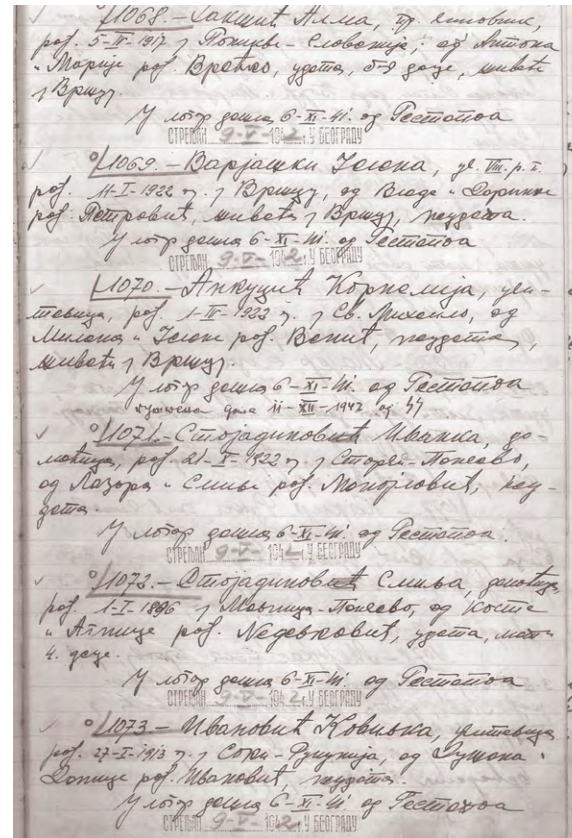 1068.– Алма, пр.
рођ. 5-II-1917 у – Словачије; од Антона
и Марије рођ. удата, живећи
у Вршцу.
У логор дошла 6-XI-41. од Гестапоа
СТРЕЉАН 9-V-1942. У БЕОГРАДУ
1069.– Варјашки Јелена, уч. VIII. р. г.
рођ. 11-I-1922 г. у Вршцу, од Владе и Даринке
рођ. Петровић, живећи у Вршцу, неудата.
У логор дошла 6-XI-41. од Гестапоа
СТРЕЉАН 9-V-1942. У БЕОГРАДУ
1070.– Анкуцић Корнелија, уче-
рођ. у Св. Михаило, од
Милана и Јелене рођ. неудата,
живећи у Вршцу.
У логор дошла 6-XI-41. од Гестапоа
дана 11-XII-1942 од
1071.– Стојадиновић Иванка, до-
маћица, рођ. г. у
од Лазара и Смиље рођ. Манојловић, неу-
дата.
У логор дошла 6-XI-41. од Гестапоа.
СТРЕЉАН 9-V-1942. У БЕОГРАДУ
1072.– Стојадиновић Смиља, домаћица,
рођ. 1-I-1896 у од Косте
и рођ. удата,
4. деце.
У логор дошла 6-XI-41. од Гестапоа
СТРЕЉАН 9-V-1942. У БЕОГРАДУ
1073.– Ивановић Ковиљка,
рођ. 27-I-1913 г. у од Душана и
рођ. Ивановић, неудата.
У логор дошла 6-XI-41. од Гестапоа
СТРЕЉАН 9-V-1942. У БЕОГРАДУ